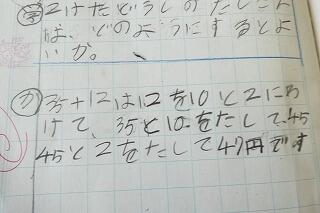 ㋲2けたどうしのたしざん
は、どのようにするとよ
いか。
㋕35+12は12を10と2にわ
けて、35と10をたして45
45と2をたして47円です